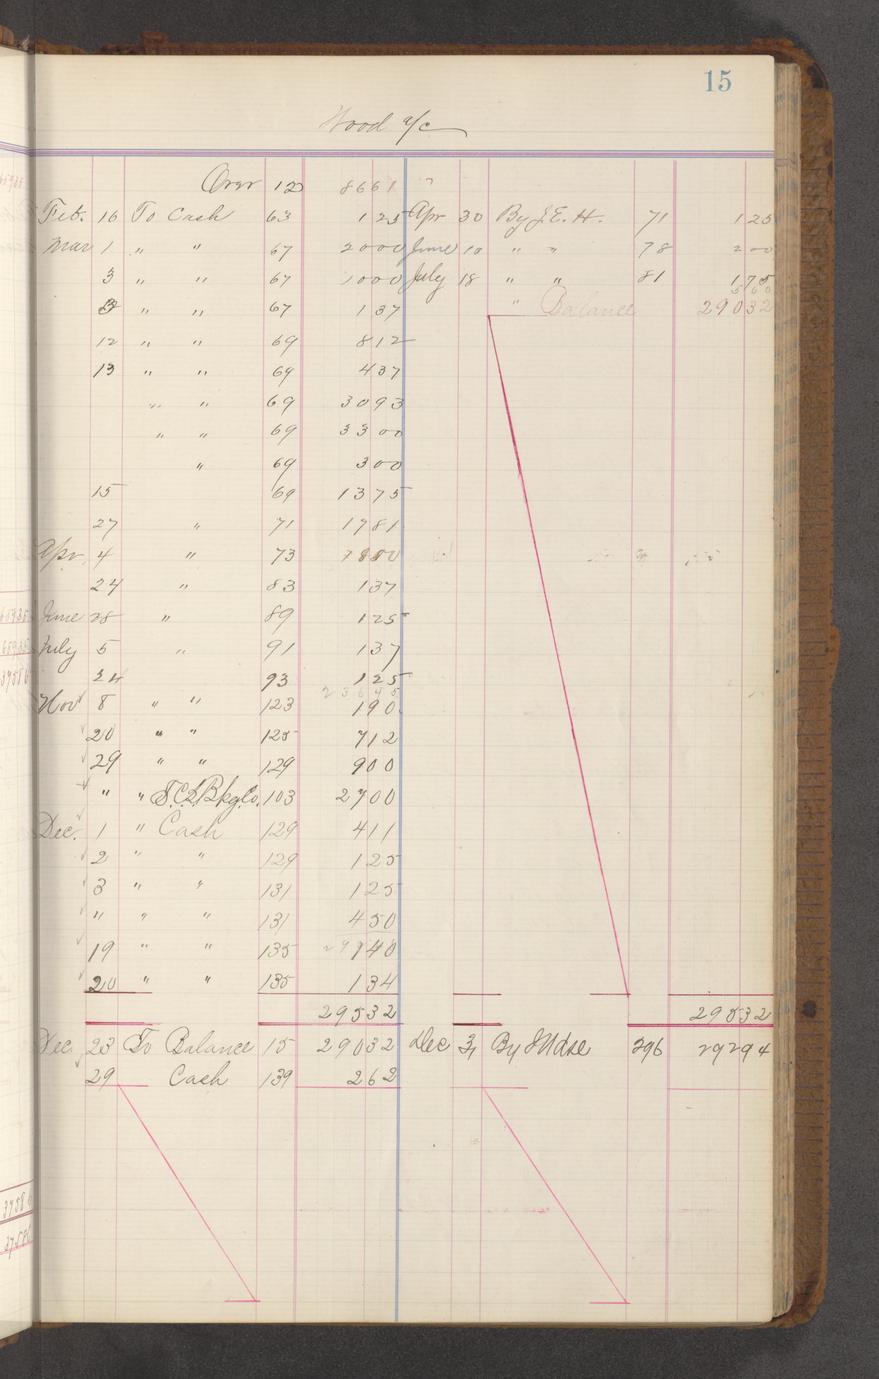 15
Wood a/c
Over 12 8661
Feb. 16 To Cash 63 125 Apr 30 By J.E.H. 71 125
Mar 1 " " 67 2000 June 10 " " 78 200
3 " " 67 1000 July 18 " " 81 175
500
3 " " 67 137 " Balance 29032
12 " " 69 812
13 " " 69 437
" " 69 3093
" " 69 3300
" 69 300
15 69 1375
27 " 71 1781
Apr. 4 " 73
24 " 83 137
June 28 " 89 125
July 5 " 91 137
24 93 125
23645
Nov 8 " " 123 190
20 " " 125 712
29 " " 129 900
" " S.C.S. Bkg. Co. 103 2700
Dec. 1 " Cash 129 411
2 " " 129 125
3 " " 131 125
" " " 131 450
19 " " 135 140
20 " " 135 134
29532 29532
Dec 23 To Balance 15 29032 Dec 31 By Mdse 296 29294
29 Cash 139 262